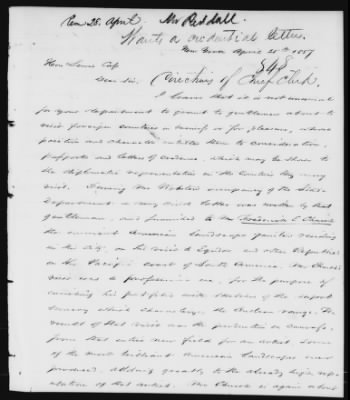 Rec 25. April. Mr Riddall.
Wants a credential letter.
New Haven April 25th 1857
Hon Lewis Cass
Dear Sir. (Directions of Chief Clerk.
I learn that it is not unusual
for your department to grant to gentlemen about to
visit foreign countries on business or for pleasure, whose
position and character entitle them to consideration,
passports and letters of credence, which may be shown to
the diplomatic representatives in the countries they may
visit. During Mr Webster's occupancy of the State
Department a very kind letter was written by that
gentleman, and furnished to Mr Frederick E. Church
the eminent American Landscape painter residing
in this City, on his visit to Equador and other Republics
on the Pacific coast of South America. Mr Church's
visit was a professional one, for the purpose of
enriching his portfolio with sketches of the superb
scenery which characterizes the Andean range. The
result of that visit was the production on canvass,
from that entire new field for an artist, some
of the most brilliant American Landscapes ever
produced, adding greatly to the already high repu-
tation of that artist. Mr Church is again about